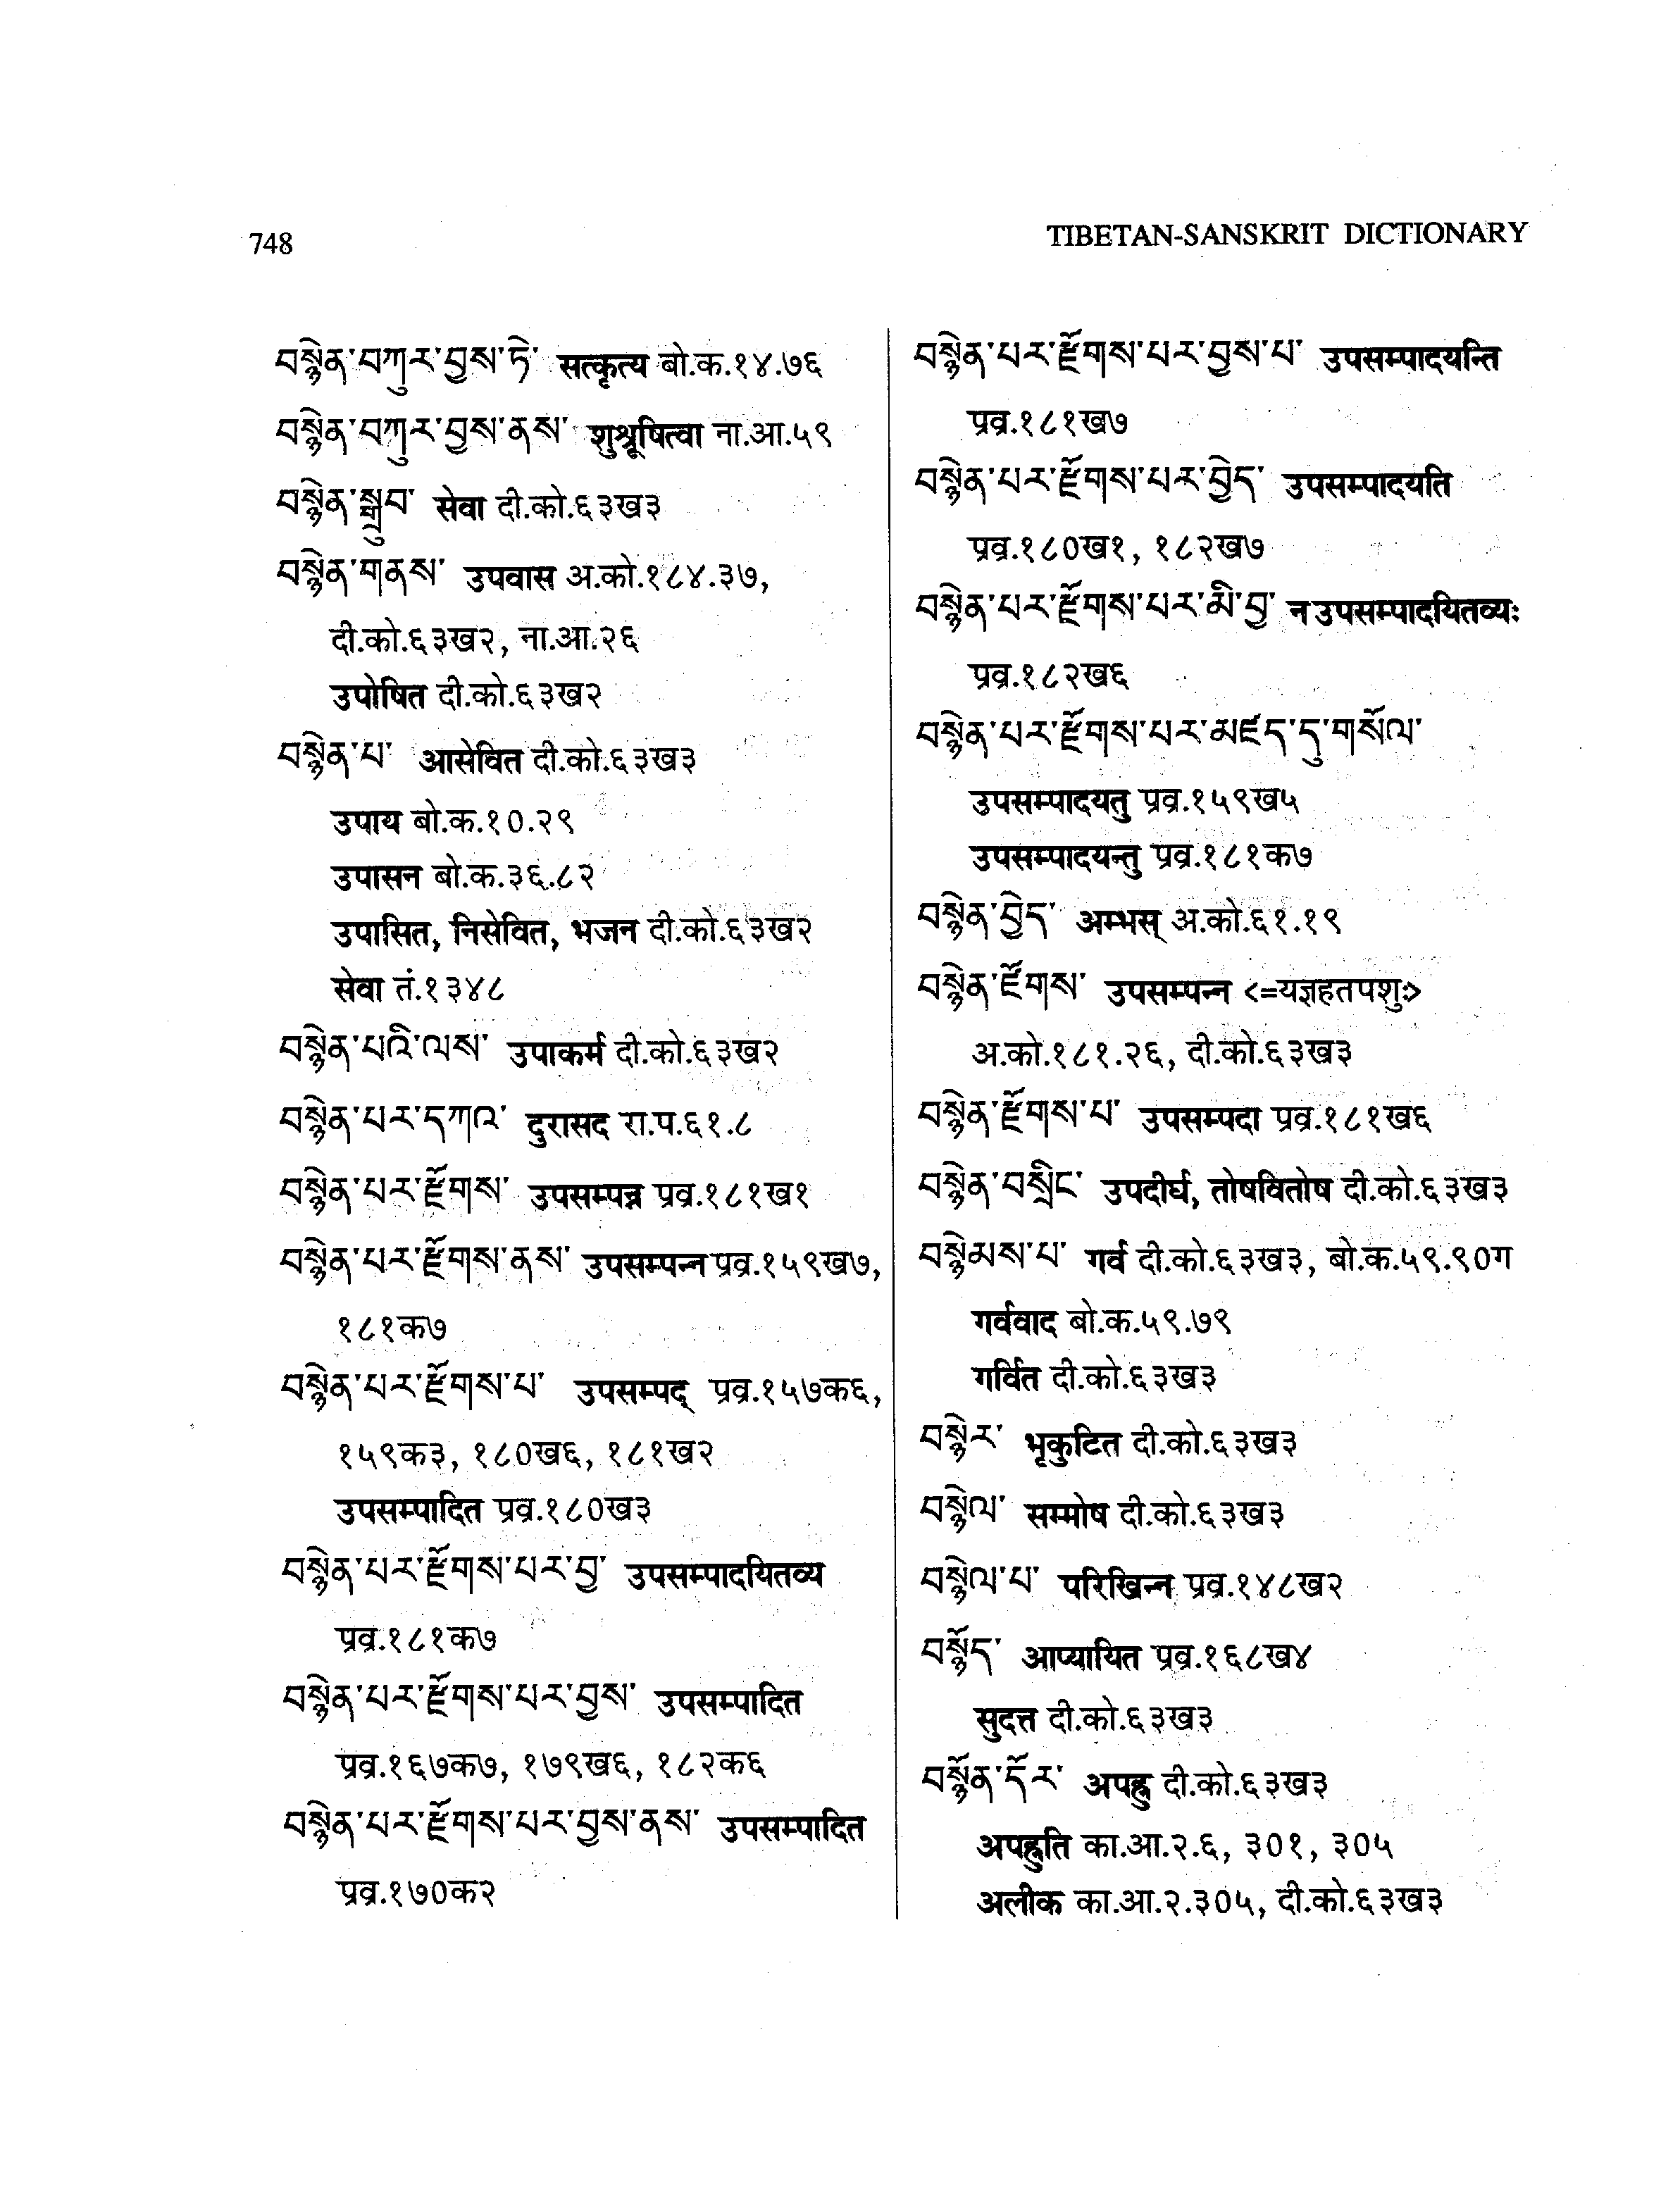 748
TIBETAN-SANSKRIT DICTIONARY
བསྙེན་བཀུར་བྱས་ཏེ་ सत्कृत्य बो.क.१४.७६
བསྙེན་བཀུར་བྱས་ནས་ शुश्रूषित्वा ना.आ.५९
བསྙེན་སྒྲུབ་ सेवा दी.को.६३ख३
བསྙེན་གནས་ उपवास अ.को.१८४.३७,
दी.को.६३ख२, ना.आ.२६
उपोषित दी.को.६३ख२
བསྙེན་པ་ आसेवित दी.को.६३ख३
उपाय बो.क.१०.२९
उपासन बो.क.३६.८२
उपासित, निसेवित, भजन दी.को.६३ख२
सेवा तं.१३४८
བསྙེན་པའི་ལས་ उपाकर्म दी.को.६३ख२
བསྙེན་པར་དཀའ་ दुरासद रा.प.६१.८
བསྙེན་པར་རྫོགས་ उपसम्पन्न प्रव्र.१८१ख१
བསྙེན་པར་རྫོགས་ནས་ उपसम्पन्न प्रव्र.१५९ख७,
१८१क७
བསྙེན་པར་རྫོགས་པ་ उपसम्पद् प्रव्र.१५७क६,
१५९क३, १८०ख६, १८१ख२
उपसम्पादित प्रव्र.१८०ख३
བསྙེན་པར་རྫོགས་པར་བྱ་ उपसम्पादयितव्य
प्रव्र.१८१क७
བསྙེན་པར་རྫོགས་པར་བྱས་ उपसम्पादित
प्रव्र.१६७क७, १७९ख६, १८२क६
བསྙེན་པར་རྫོགས་པར་བྱས་ནས་ उपसम्पादित
प्रव्र.१७०क२
བསྙེན་པར་རྫོགས་པར་བྱས་པ་ उपसम्पादयन्ति
प्रव्र.१८१ख७
བསྙེན་པར་རྫོགས་པར་བྱེད་ उपसम्पादयति
प्रव्र.१८०ख१, १८२ख७
བསྙེན་པར་རྫོགས་པར་མི་བྱ་ न उपसम्पादयितव्यः
प्रव्र.१८२ख६
བསྙེན་པར་རྫོགས་པར་མཛད་དུ་གསོལ་
उपसम्पादयतु प्रव्र.१५९ख५
उपसम्पादयन्तु प्रव्र.१८१क७
བསྙེན་བྱེད་ अम्भस् अ.को.६१.१९
བསྙེན་རྫོགས་ उपसम्पन्न <=यज्ञहतपशुः>
अ.को.१८१.२६, दी.को.६३ख३
བསྙེན་རྫོགས་པ་ उपसम्पदा प्रव्र.१८१ख६
བསྙེན་བསྲིང་ उपदीर्घ, तोषवितोष दी.को.६३ख३
བསྙེམས་པ་ गर्व दी.को.६३ख३, बो.क.५९.९०ग
गर्ववाद बो.क.५९.७९
गर्वित दी.को.६३ख३
བསྙེར་ भृकुटित दी.को.६३ख३
བསྙེལ་ सम्मोष दी.को.६३ख३
བསྙེལ་པ་ परिखिन्न प्रव्र.१४८ख२
བསྙོད་ आप्यायित प्रव्र.१६८ख४
सुदत्त दी.को.६३ख३
བསྙོན་དོར་ अपह्नु दी.को.६३ख३
अपह्नुति का.आ.२.६, ३०१, ३०५
अलीक का.आ.२.३०५, दी.को.६३ख३